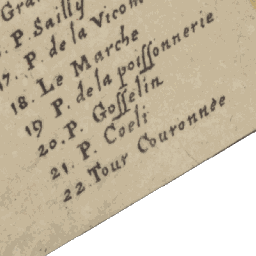 Gra
. P. Sailly
17. P. de la Vicom
18. Le Marche
19 P. de la poiſſonnerie
20. P. Goſſelin
21. P. Coeli
22. Tour Couronnée